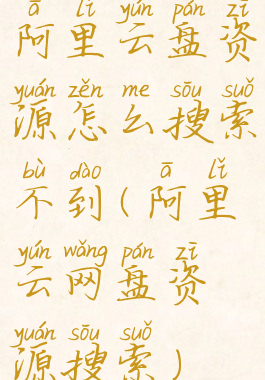 ā lǐ yún pán zī
阿里云盘资
yuán zěn me sōu suǒ
源怎么搜索
bù dào ā lǐ
不到(阿里
yún wǎng pán zī
云网盘资
yuán sōu suǒ
源搜索)